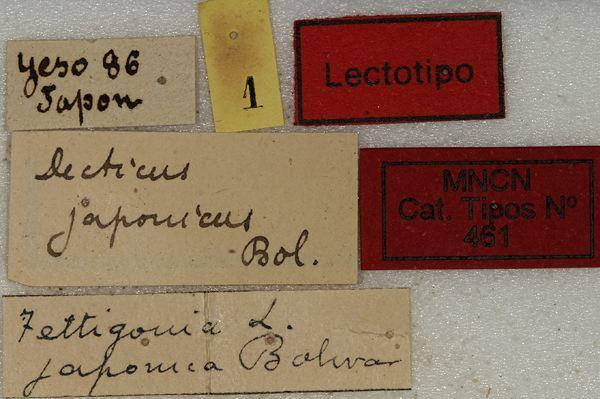 Yeso 86
Japon
1
Lectotipo
Decticus
japonicus
Bol.
MNCN
Cat. Tipos Nº
461
Tettigonia L.
japonica Bolivar